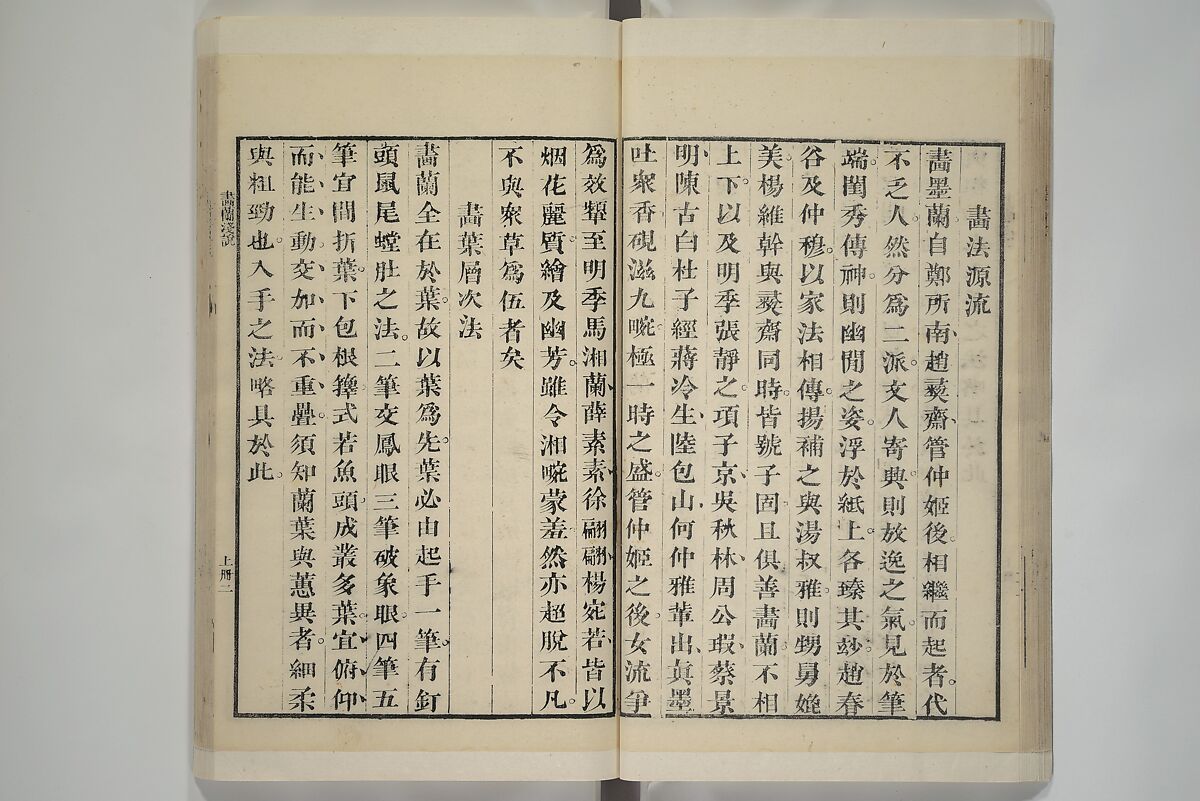 畫法源流
畫墨蘭自鄭所南、趙彝齋、管仲姬後。相繼而起者。代
不乏人。然分爲二派。文人寄興。則放逸之氣。見於筆
端。閨秀傳神。則幽閒之姿。浮於紙上。各臻其玅。趙春
谷及仲穆。以家法相傳。揚補之與湯叔雅。則甥舅媲
美。楊維幹與彝齋同時。皆號子固。且俱善畫蘭。不相
上下。以及明季張靜之、項子京、吳秋林、周公瑕、蔡景
明、陳古白、杜子經、蔣冷生、陸包山、何仲雅輩出。眞墨
吐衆香。硯滋九畹。極一時之盛。管仲姬之後。女流爭
爲效顰。至明季馬湘蘭、薛素素、徐翩翩、楊宛若、皆以
烟花麗質。繪及幽芳。雖令湘畹蒙羞。然亦超脫不凡。
不與衆草爲伍者矣
畫葉層次法
畫蘭全在於葉。故以葉爲先。葉必由起手一筆。有釘
頭鼠尾螳肚之法。二筆交鳳眼。三筆破象眼。四筆五
筆宜間折葉。下包根籜。式若魚頭。成叢多葉。宜俯仰
而能生動。交加而不重疊。須知蘭葉與蕙異者。細柔
與粗勁也。入手之法。略具於此。
畫蘭淺說
上册二